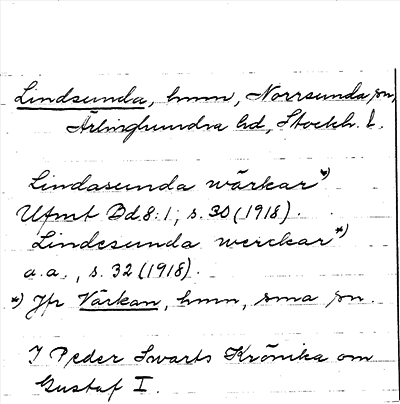 Lindsunda, hmn, Norrsunda sn,
Ärlinghundra hd, Stockh. l.
Lindasunda wärkar*)
Ufmt Bd 8:1, s. 30 (1918).
Lindesunda werckar*)
a.a., s. 32 (1918).
*) Jfr Värkan, hmn, sma sn.
I Peder Swarts Krönika om
Gustaf I.